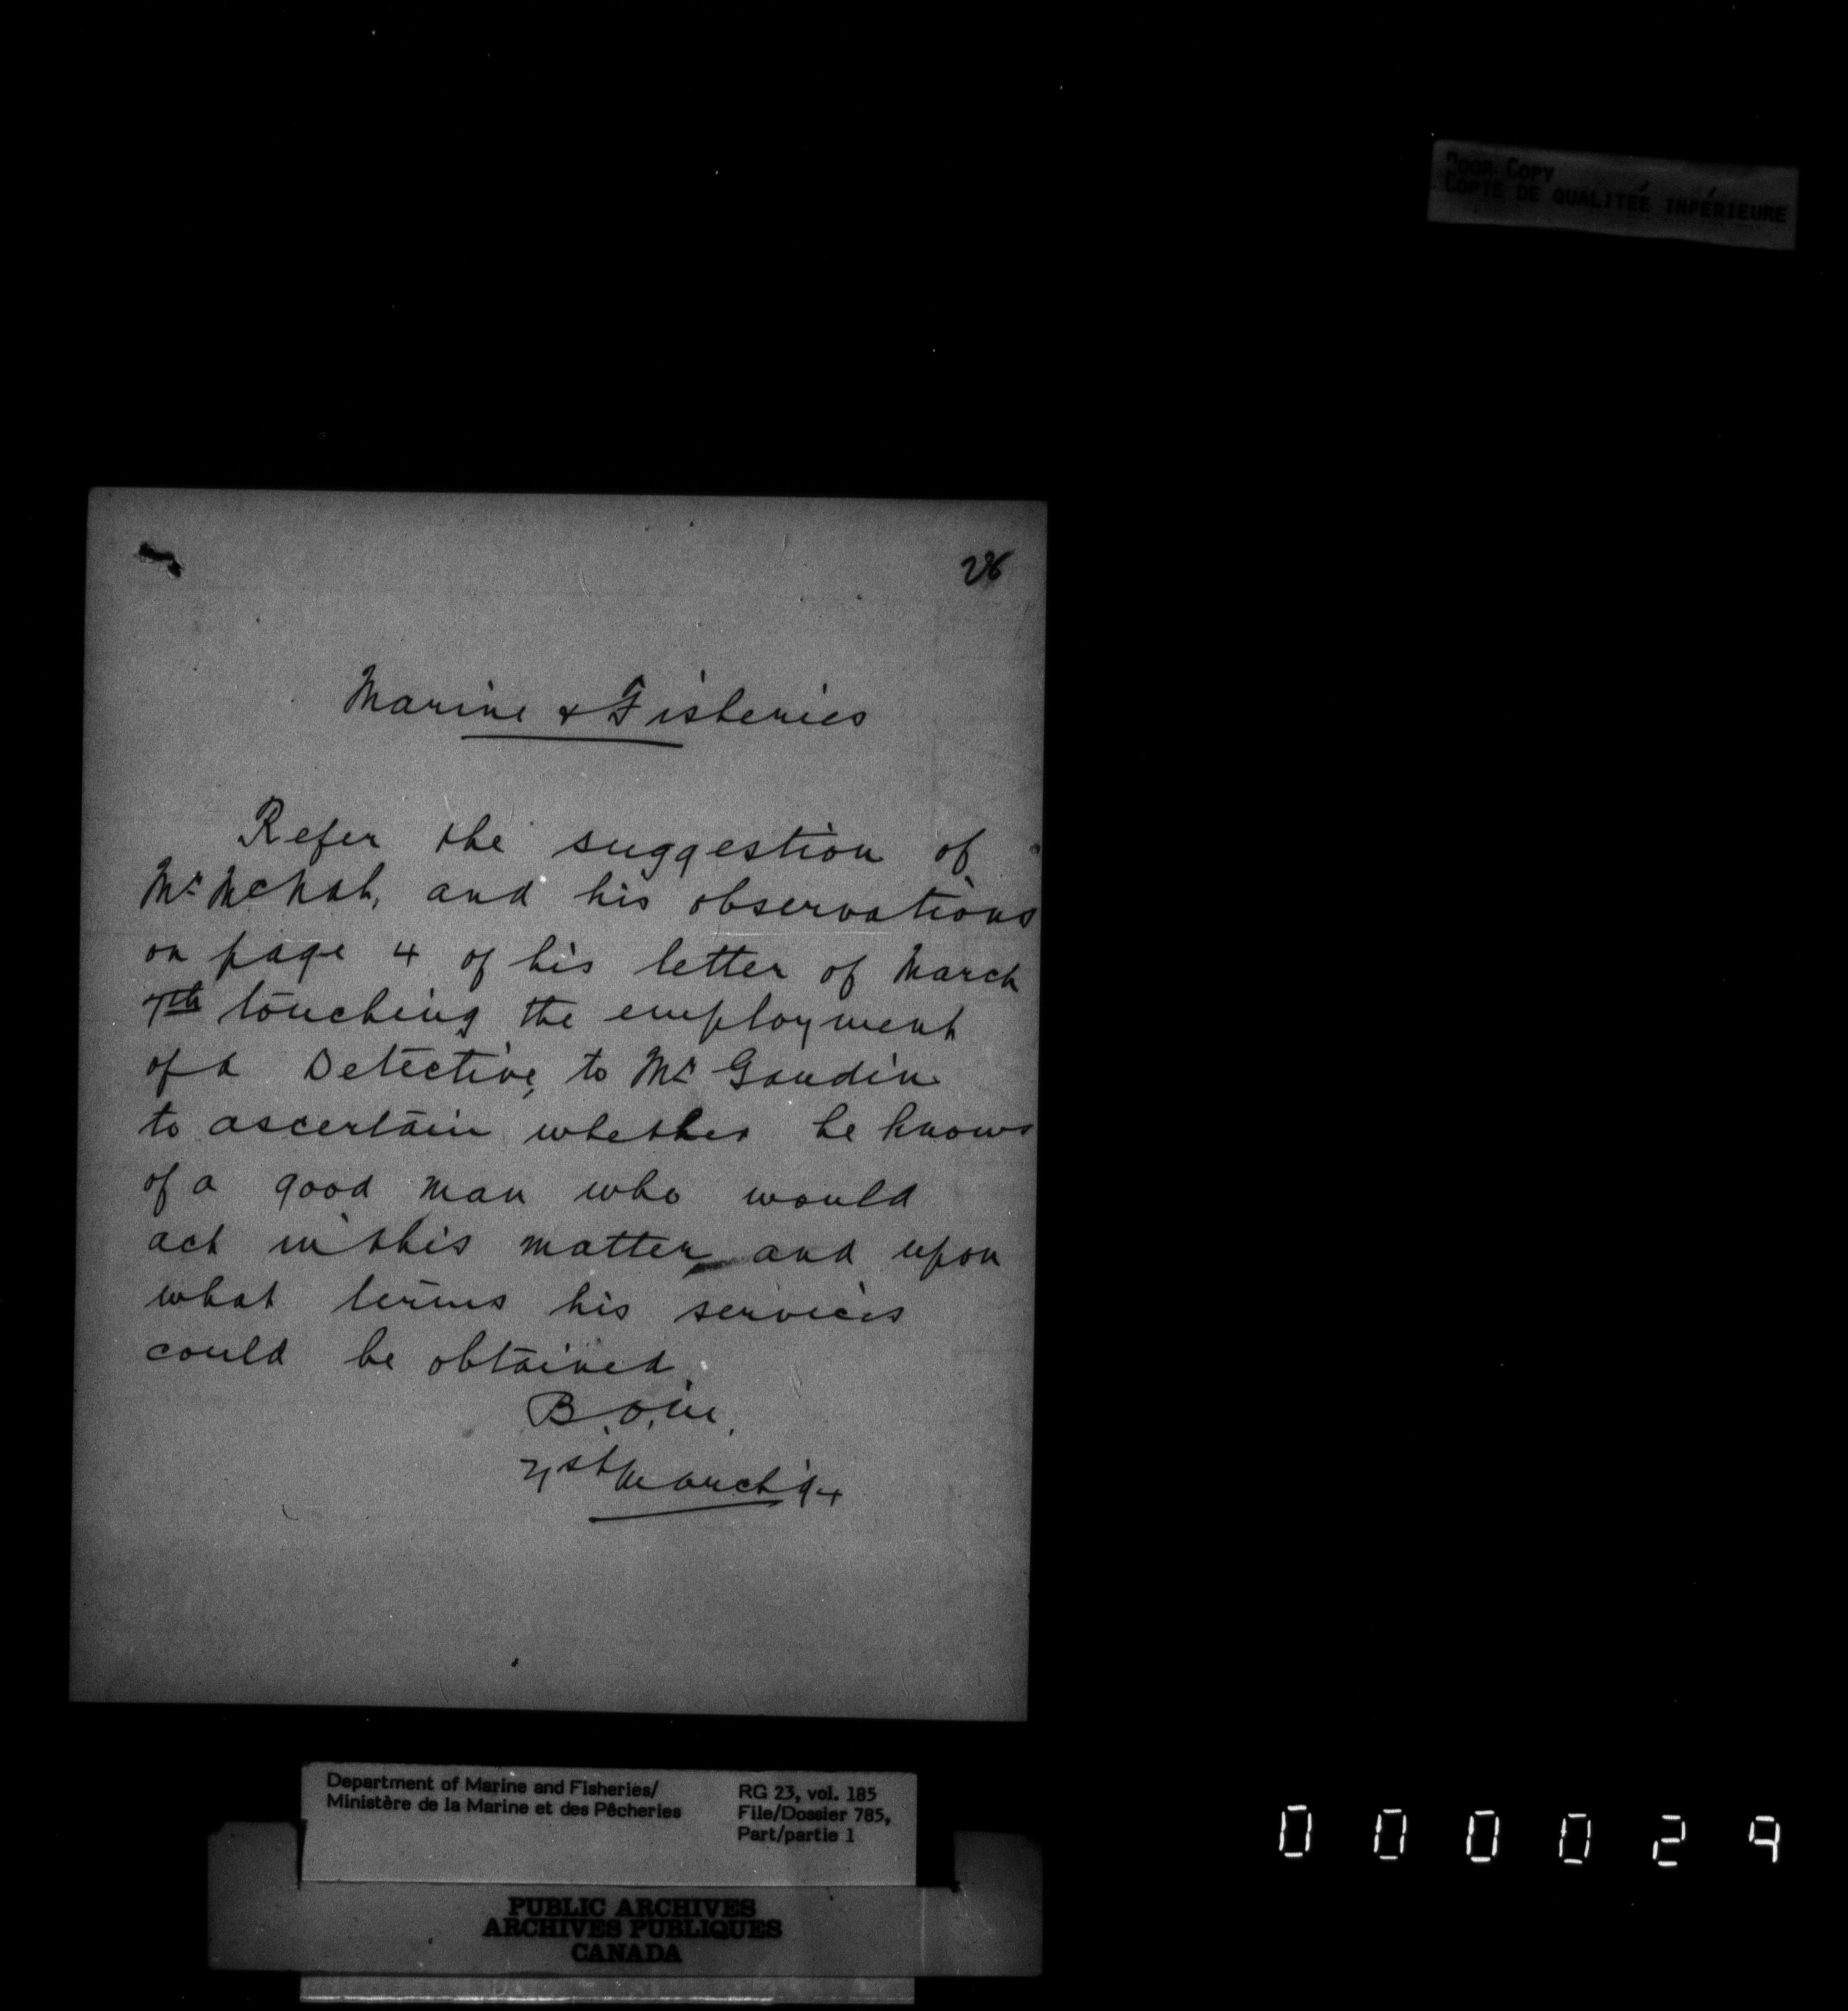 POOR COPY
COPIE DE QUALITEÉ INFÉRIEURE
26
Marine & Fisheries
Refer the suggestion of
Mr McNab, and his observations
on page 4 of his letter of March
7th touching the employment
of a Detective, to Mr Gaudin
to ascertain whether he knows
of a good man who would
act in this matter and upon
what terms his services
could be obtained.
21st March '94
Department of Marine and Fisheries/
Ministère de la Marine et des Pêcheries
RG 23, vol. 185
File/Dossier 785,
Part/partie 1
PUBLIC ARCHIVES
ARCHIVES PUBLIQUES
CANADA
000029